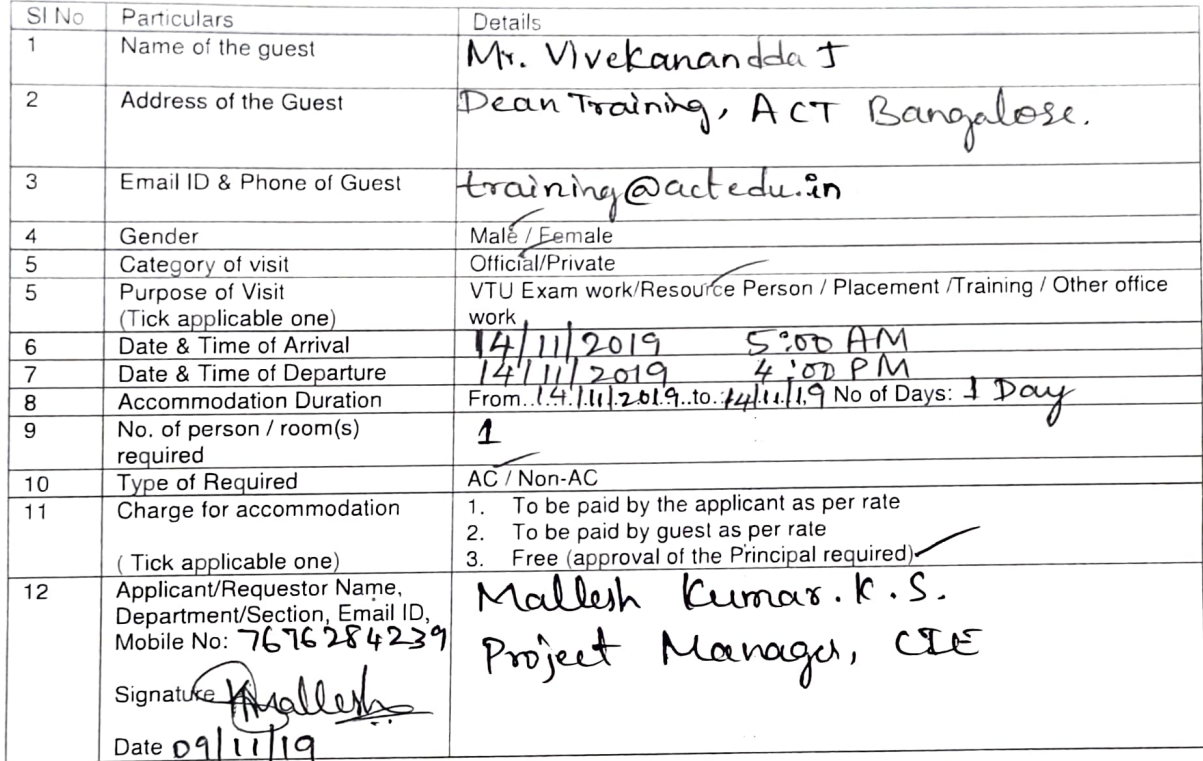 Sl No Particulars Details
1 Name of the guest Mr. Vivekanandda J
2 Address of the Guest Dean Training, ACT Bangalore.
3 Email ID & Phone of Guest training@actedu.in
4 Gender Male / Female
5 Category of visit Official/Private
5 Purpose of Visit VTU Exam work/Resource Person / Placement /Training / Other office
(Tick applicable one) work
6 Date & Time of Arrival 14/11/2019 5:00 AM
7 Date & Time of Departure 14/11/2019 4:00 PM
8 Accommodation Duration From..14/11/2019..to.14/11/19 No of Days: 1 Day
9 No. of person / room(s) 1
required
10 Type of Required AC / Non-AC
11 Charge for accommodation 1. To be paid by the applicant as per rate
2. To be paid by guest as per rate
( Tick applicable one) 3. Free (approval of the Principal required)
12 Applicant/Requestor Name, Mallesh Kumar. K. S.
Department/Section, Email ID,
Mobile No: 7676284239 Project Manager, CIE
Signature Mallesh
Date 09/11/19